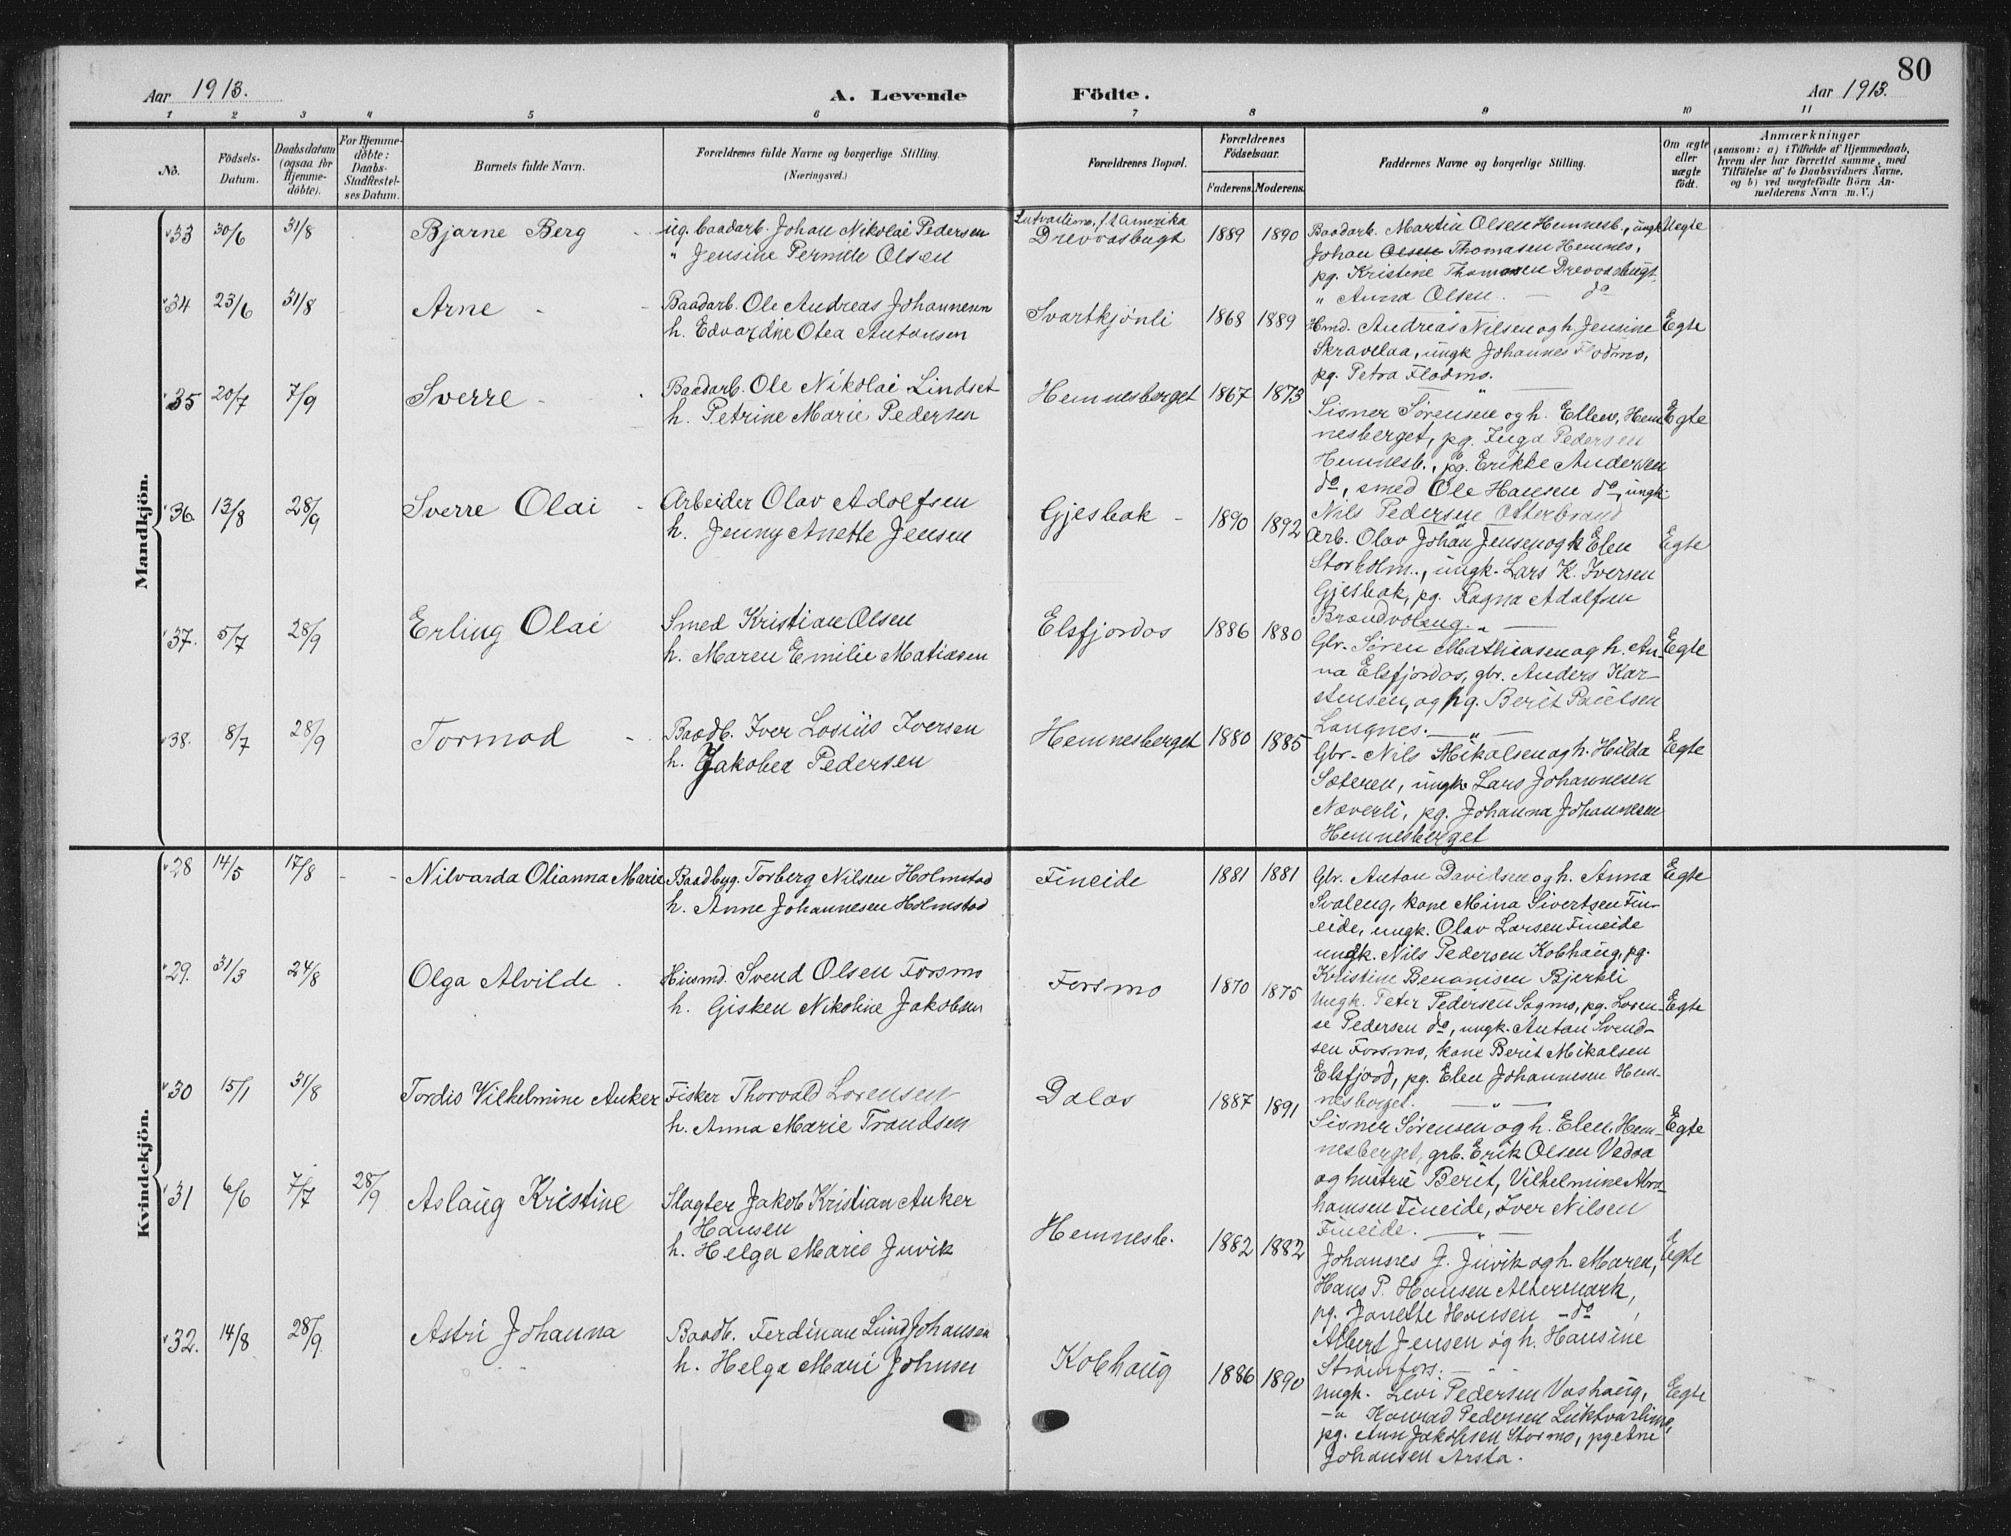 80
Aar 1913.
A. Levende
Födte.
Aar 1913.
1 2 3 4 5 6 7 8 9 10 11
No.
Födsels-
Datum.
Daabsdatum
(ogsaa for
Hjemme-
döbte).
For Hjemme-
döbte:
Daabs-
Stadfæstel-
ses Datum.
Barnets fulde Navn.
Forældrenes fulde Navne og borgerlige Stilling.
(Næringsvei.)
Forældrenes Bopæl.
Forældrenes
Födselsaar.
Faderens. Moderens.
Faddernes Navne og borgerlige Stilling.
Om ægte
eller
uægte
födt.
Anmærkninger
(saasom: a) i Tilfælde af Hjemmedaab,
hvem der har forrettet samme, med
Tilföielse af to Daabsvidners Navne,
og b) ved uægtefödte Börn An-
melderens Navn m. V.)
Mandkjön.
33 30/6 31/8 Bjarne Berg
ug. baadarb. Johan Nikolai Pedersen
" Jensine Pernille Olsen
f. t. Amerika
Drevvasbugt
1889 1890
Baadarb. Martin Olsen Hemnesb., ungk
Johan Olsen Thomasen Hemnes,
pg. Kristine Thomasen Drevvasbugt,
" Anna Olsen. — do
Uegte
34 23/6 31/8 Arne
Baadarb. Ole Andreas Johannesen
h. Edvardine Otea Antonsen
Svartkjönli
1868 1889
Hmd. Andreas Nilsen og h. Jensine
Skravlaa, ungk Johannes Flodmo,
pg. Petra Flodmo.
Egte
35 20/7 7/9 Sverre
Baadarb. Ole Nikolai Lindset
h. Petrine Marie Pedersen
Hemnesberget
1867 1873
Sisner Sörensen og h. Ellen, Hem
nesberget, pg. Inga Pedersen
Hemnesb., pg. Erikke Andersen
do, smed Ole Hansen do, ungk.
Nils Pedersen Otterbrand
Egte
36. 13/8 28/9 Sverre Olai
Arbeider Olav Adolfsen
h. Jenny Anette Jensen
Gjesbak
1890 1892
Arb. Olav Johan Jensen og h Elen
Storholm., ungk. Lars K. Iversen
Gjesbak, pg. Ragna Adolfsen
Brændvolæng.
Egte
37. 5/7 28/9 Erling Olai
Smed Kristian Olsen
h. Maren Emilie Matiasen
Elsfjordos
1886 1880
Gbr. Sören Mathiasen og h. An-
na Elsfjordos, gbr. Anders Kar-
stensen, og pg. Berit Paulsen
Langnes. — " —
Egte
38. 8/7 28/9 Tormod
Baadb. Iver Losius Iversen
h. Jakobea Pedersen
Hemnesberget
1880 1885
Gbr. Nils Mikalsen og h. Hilda
Sæteren, ungk Lars Johannesen
Næverli, pg. Johanna Johannesen
Hemnesberget
Egte
Kvindekjön.
28 14/5 17/8 Nilvarda Olianna Marie
Baadbyg. Torberg Nilsen Holmstad
h. Anne Johannesen Holmstad
Fineide
1881 1881
Gbr. Anton Davidsen og h. Anna
Svaleng, kone Mina Sivertsen Fin-
eide, ungk. Olav Larsen Fineide
ungk. Nils Pedersen Kobhaug, pg.
Kristine Benonisen Bjerkli
Egte
29. 31/3 24/8 Olga Alvilde
Husmd. Svend Olsen Forsmo
h. Gisken Nikoline Jakobsen
Forsmo
1870 1875
Ungk. Peter Pedersen Sagmo, pg. Loren-
se Pedersen do, ungk. Anton Svend-
sen Forsmo, kone Berit Mikalsen
Elsfjord, pg. Elen Johannesen Hem-
nesberget. — " —
Egte
30 15/1 31/8 Tordis Vilhelmine Anker
Fisker Thorvald Lorensen
h. Anna Marie Trondsen
Dalos
1887 1891
Sisner Sörensen og h. Elen, Hem-
nesberget, grb. Erik Olsen Vedaa
og hustru Berit, Vilhelmine Abra-
hamsen Fineide, Iver Nilsen
Fineide. — " —
Egte
31 6/6 7/7 28/9 Aslaug Kristine
Slagter Jakob Kristian Anker
Hansen
h. Helga Marie Juvik
Hemnesb.
1882 1882
Johannes J. Juvik og h. Maren,
Hans P. Hansen Altermark,
pg. Janette Hansen — do
Albert Jensen og h. Hansine
Strömfors. —
Egte
32. 14/8 28/9. Astri Johanna
Baadb. Ferdinan Lund Johansen
h. Helga Marie Johnsen
Kobhaug
1886 1890
Ungk. Levi Pedersen Vashaug,
— " Konrad Pedersen Luktvatlimo,
pg. Ann Jakobsen Stormo, pg Ane
Johansen Arsta.
Egte